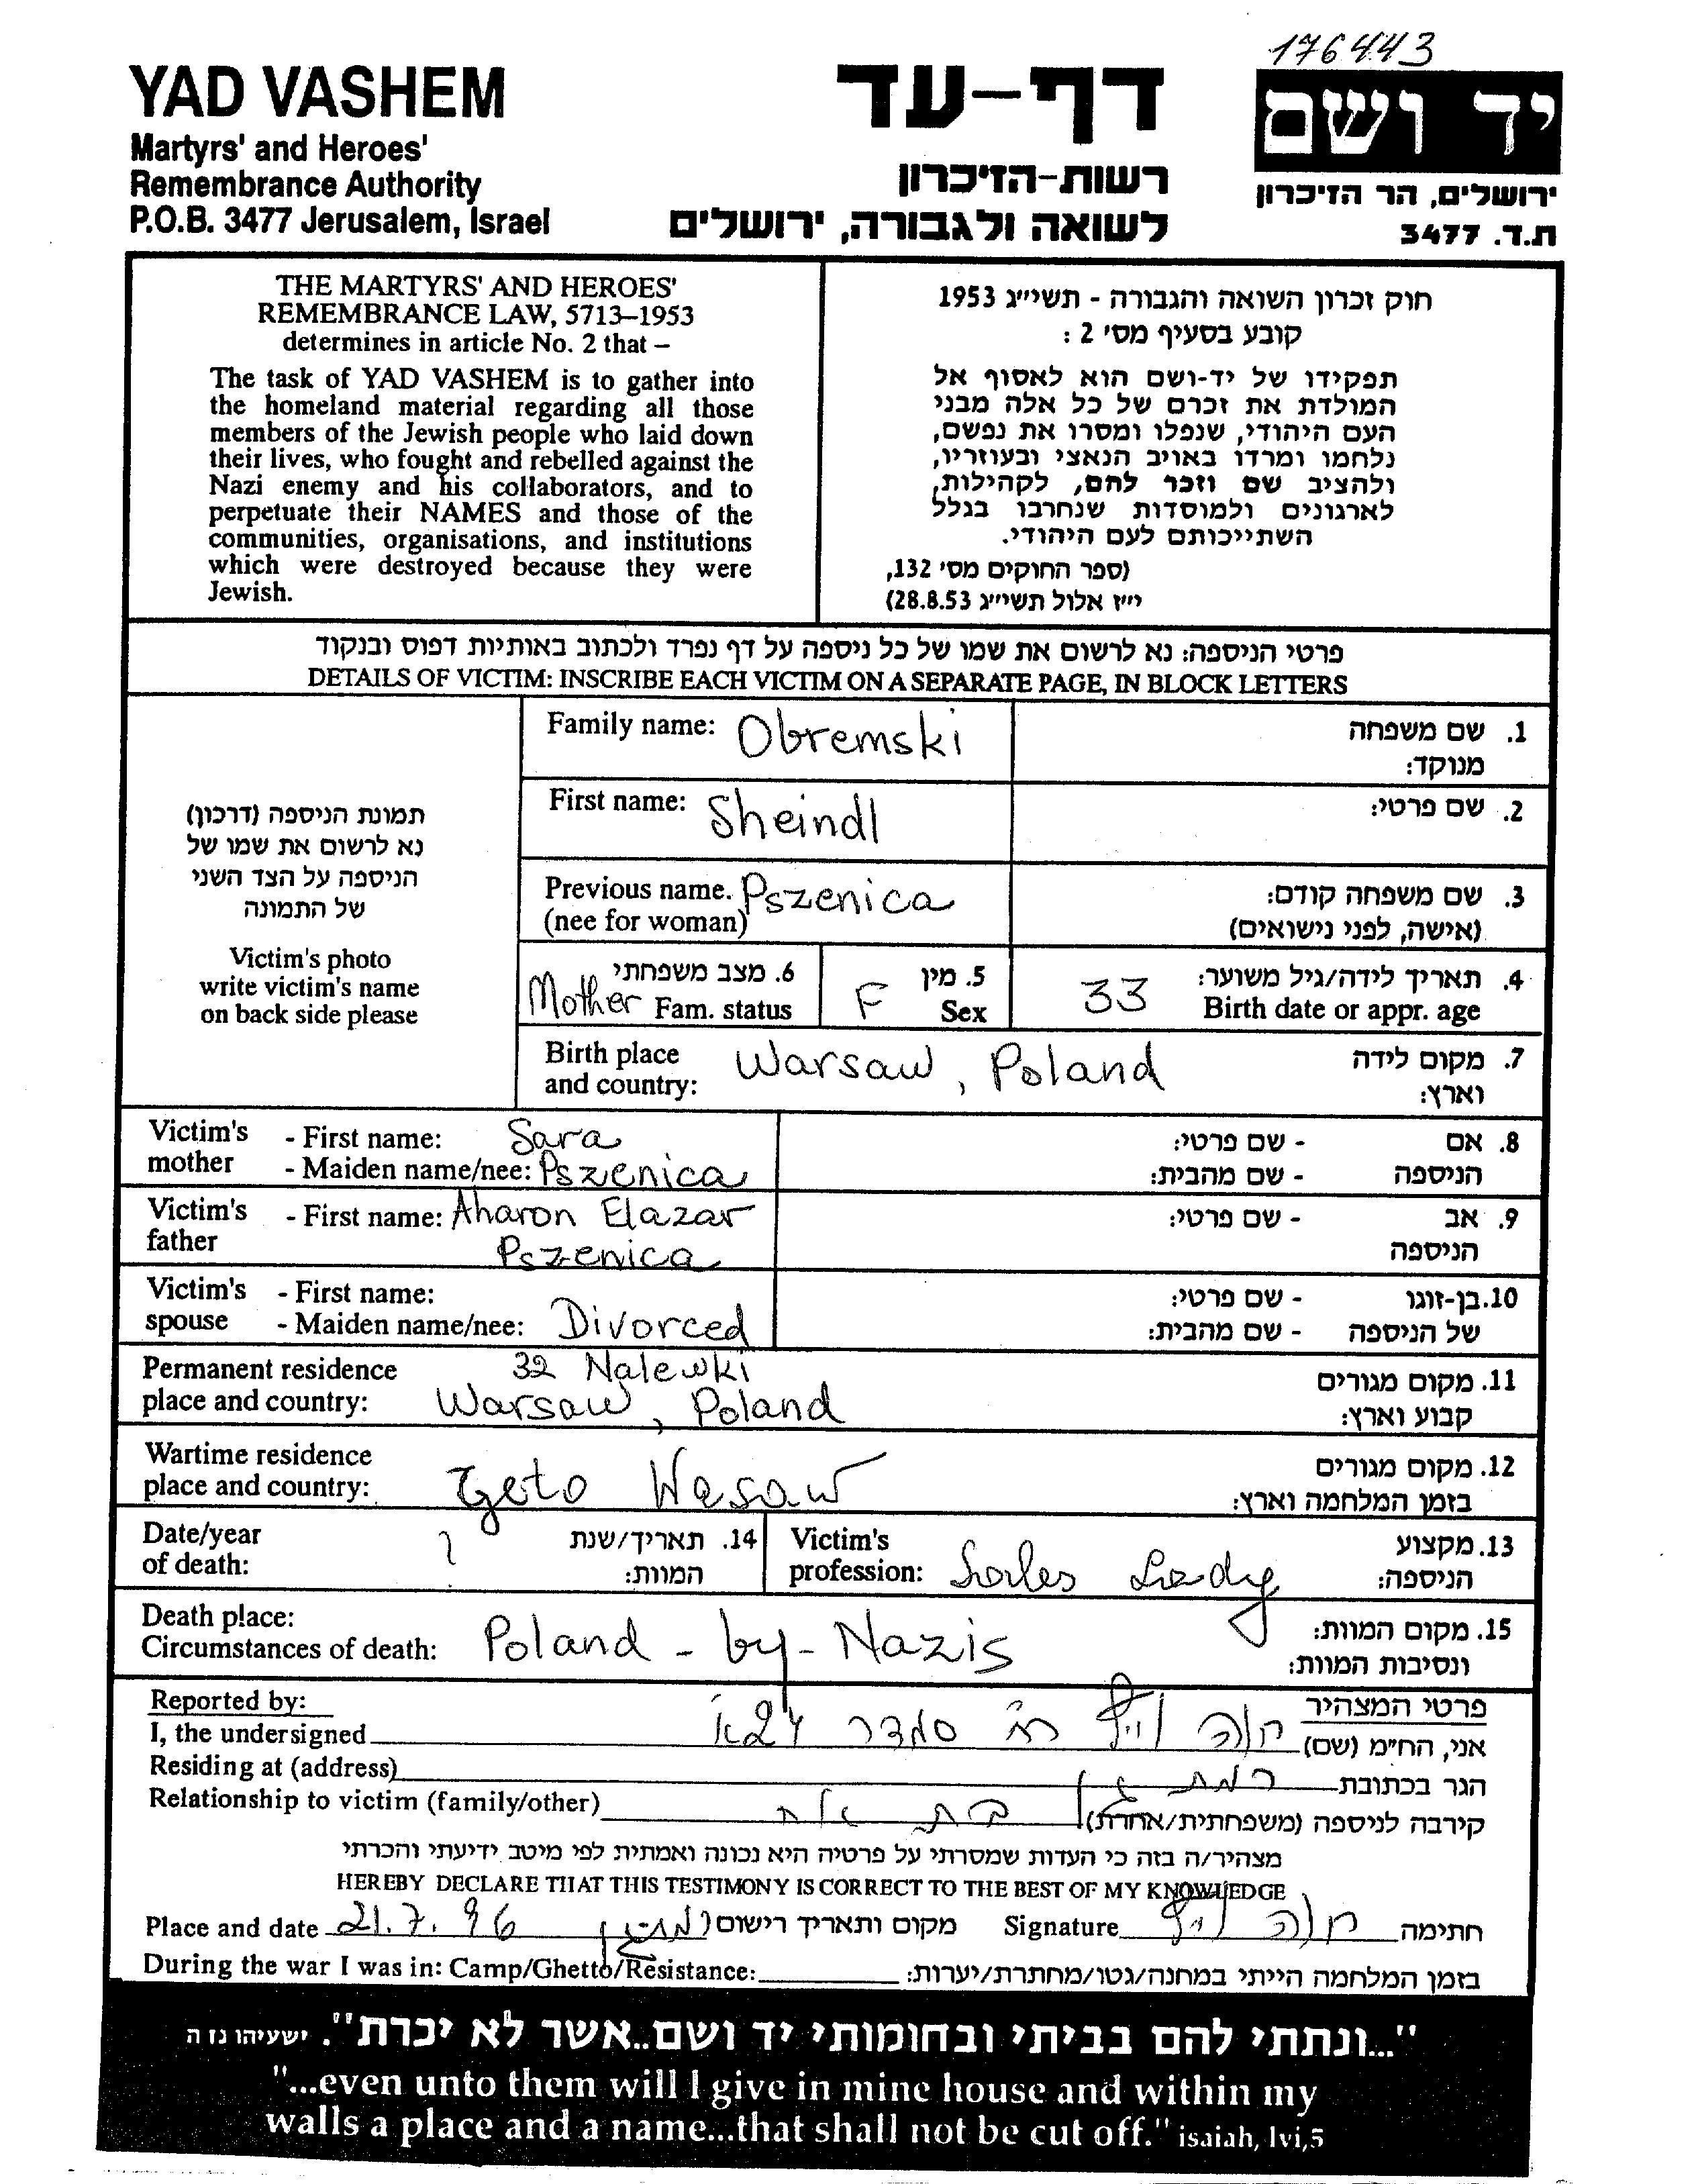 176443
YAD VASHEM
Martyrs' and Heroes'
Remembrance Authority
P.O.B. 3477 Jerusalem, Israel
דף-עד
רשות-הזיכרון
לשואה ולגבורה, ירושלים
יד ושם
ירושלים, הר הזיכרון
ת.ד. 3477
THE MARTYRS' AND HEROES'
REMEMBRANCE LAW, 5713–1953
determines in article No. 2 that –
The task of YAD VASHEM is to gather into
the homeland material regarding all those
members of the Jewish people who laid down
their lives, who fought and rebelled against the
Nazi enemy and his collaborators, and to
perpetuate their NAMES and those of the
communities, organisations, and institutions
which were destroyed because they were
Jewish.
חוק זכרון השואה והגבורה - תשי״ג 1953
קובע בסעיף מס' 2 :
תפקידו של יד-ושם הוא לאסוף אל
המולדת את זכרם של כל אלה מבני
העם היהודי, שנפלו ומסרו את נפשם,
נלחמו ומרדו באויב הנאצי ובעוזריו,
ולהציב שם וזכר להם, לקהילות,
לארגונים ולמוסדות שנחרבו בגלל
השתייכותם לעם היהודי.
(ספר החוקים מס' 132,
י״ז אלול תשי״ג 28.8.53)
פרטי הניספה: נא לרשום את שמו של כל ניספה על דף נפרד ולכתוב באותיות דפוס ובנקוד
DETAILS OF VICTIM: INSCRIBE EACH VICTIM ON A SEPARATE PAGE, IN BLOCK LETTERS
תמונת הניספה (דרכון)
נא לרשום את שמו של
הניספה על הצד השני
של התמונה
Victim's photo
write victim's name
on back side please
Family name: Obremski
1. שם משפחה
מנוקד:
First name: Sheindl
2. שם פרטי:
Previous name. Pszenica
(nee for woman)
3. שם משפחה קודם:
(אישה, לפני נישואים)
6. מצב משפחתי
Mother Fam. status
5. מין
F Sex
4. תאריך לידה/גיל משוער:
33 Birth date or appr. age
Birth place
and country: Warsaw, Poland
7. מקום לידה
וארץ:
Victim's mother - First name: Sara
- Maiden name/nee: Pszenica
8. אם - שם פרטי:
הניספה - שם מהבית:
Victim's father - First name: Aharon Elazar
Pszenica
9. אב - שם פרטי:
הניספה
Victim's spouse - First name:
- Maiden name/nee: Divorced
10. בן-זוגו - שם פרטי:
של הניספה - שם מהבית:
Permanent residence 32 Nalewki
place and country: Warsaw, Poland
11. מקום מגורים
קבוע וארץ:
Wartime residence
place and country: Geto Wasaw
12. מקום מגורים
בזמן המלחמה וארץ:
Date/year
of death: ?
14. תאריך/שנת
המוות:
Victim's
profession: Sales Lady
13. מקצוע
הניספה:
Death place:
Circumstances of death: Poland - by - Nazis
15. מקום המוות:
ונסיבות המוות:
Reported by:
פרטי המצהיר
I, the undersigned
אני, הח״מ (שם) חוה
Residing at (address)
הגר בכתובת רמת גן
Relationship to victim (family/other)
קירבה לניספה (משפחתית/אחרת) בת
מצהיר/ה בזה כי העדות שמסרתי על פרטיה היא נכונה ואמתית לפי מיטב ידיעתי והכרתי
HEREBY DECLARE THAT THIS TESTIMONY IS CORRECT TO THE BEST OF MY KNOWLEDGE
Place and date 21.7.96 מקום ותאריך רישום רמת גן
Signature חוה חתימה
During the war I was in: Camp/Ghetto/Resistance:
בזמן המלחמה הייתי במחנה/גטו/מחתרת/יערות:
"...ונתתי להם בביתי ובחומותי יד ושם..אשר לא יכרת". ישעיהו נו ה
"...even unto them will I give in mine house and within my
walls a place and a name...that shall not be cut off." isaiah, lvi,5